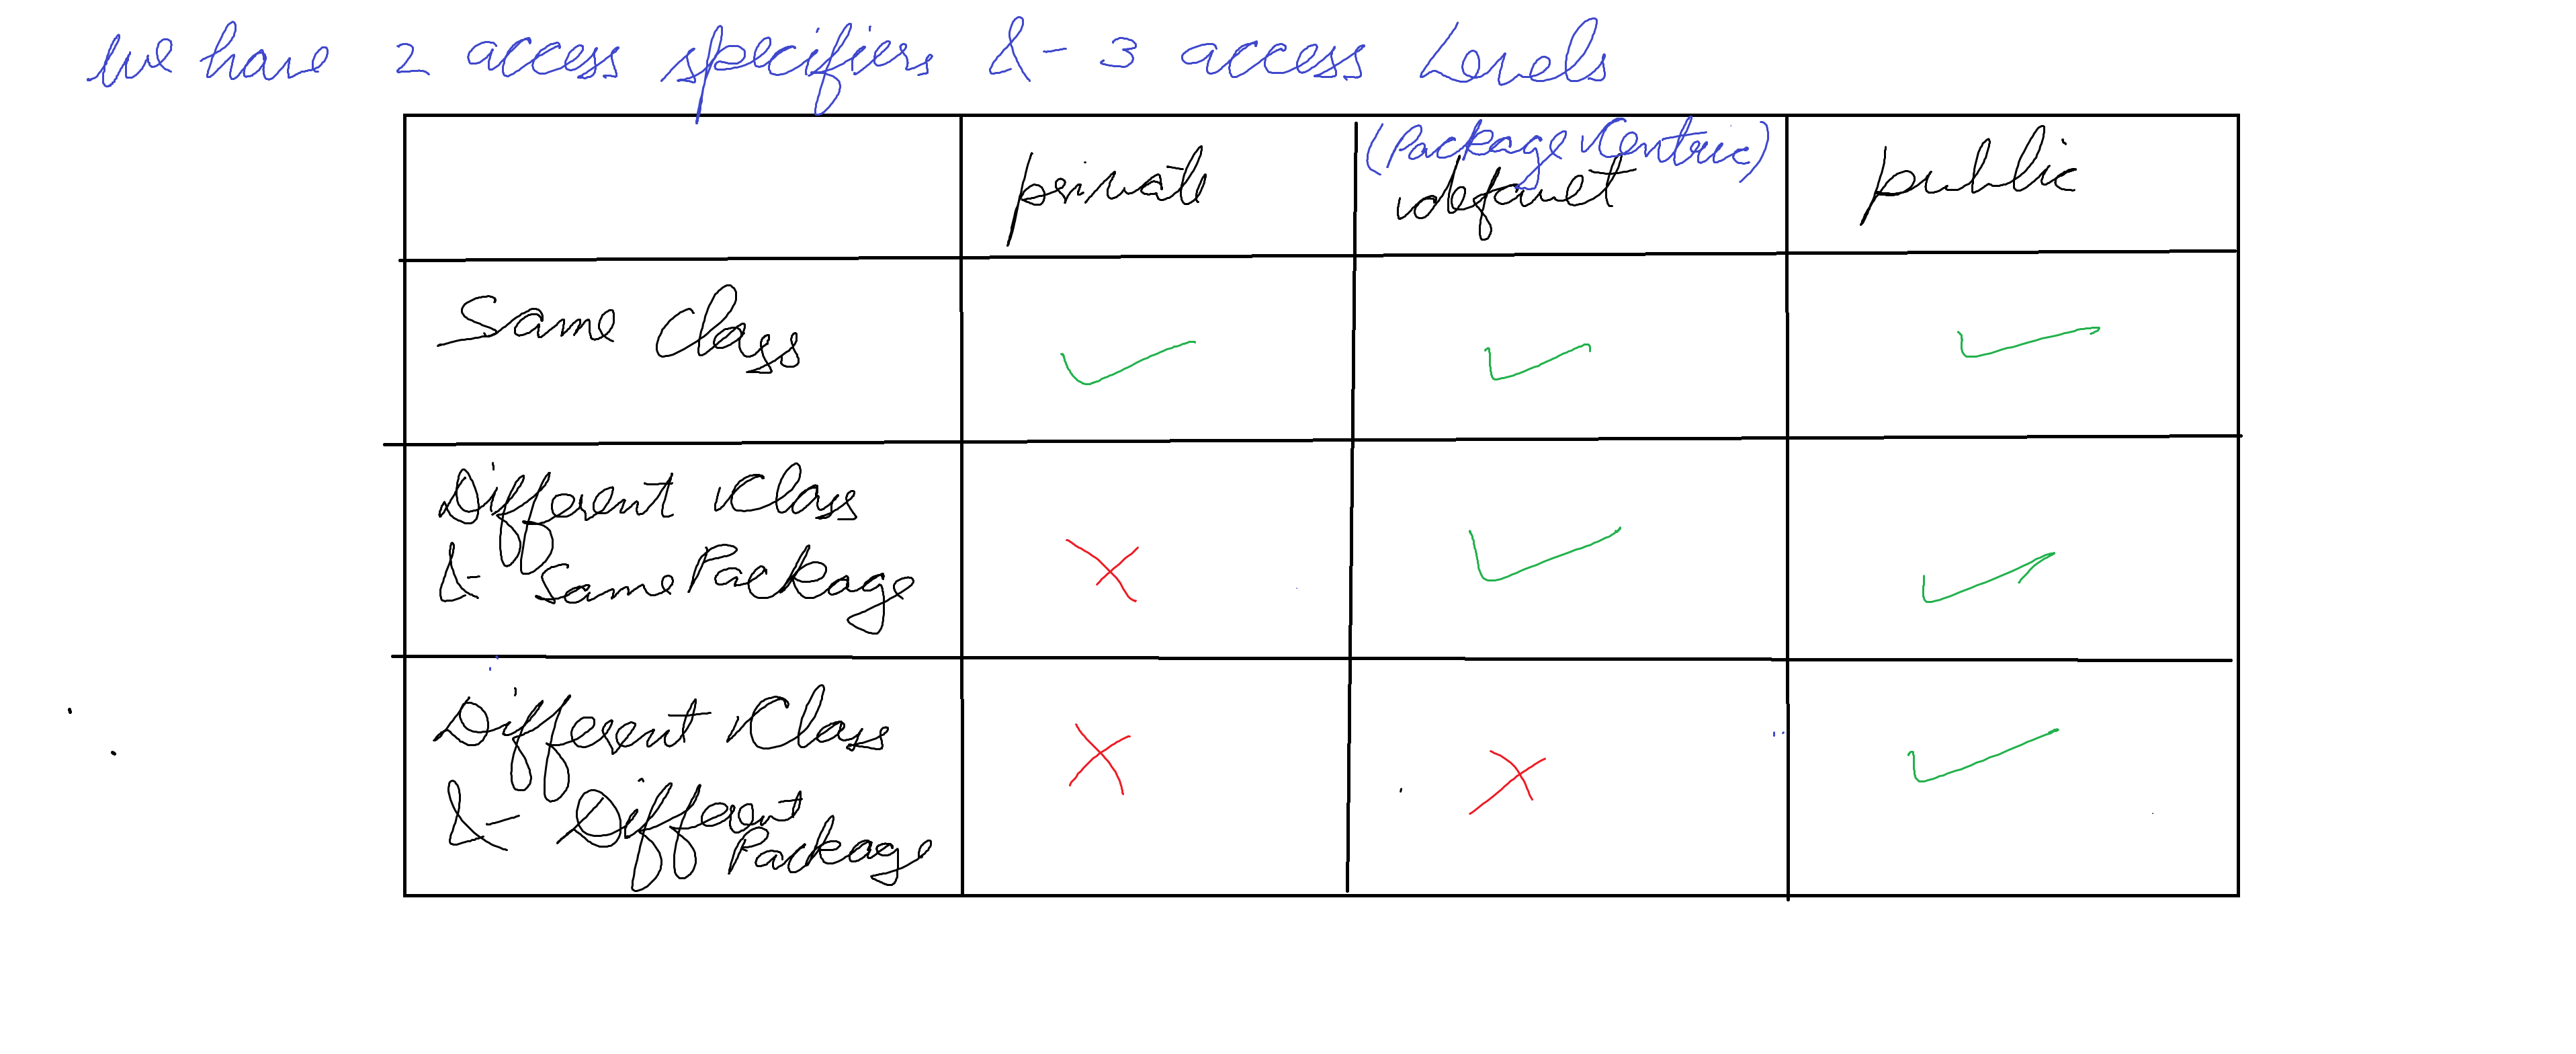 We have 2 access specifiers & 3 access Levels
private (Package Centric) default public
Same Class ✓ ✓ ✓
Different Class
& Same Package ✗ ✓ ✓
Different Class
& Different
Package ✗ ✗ ✓